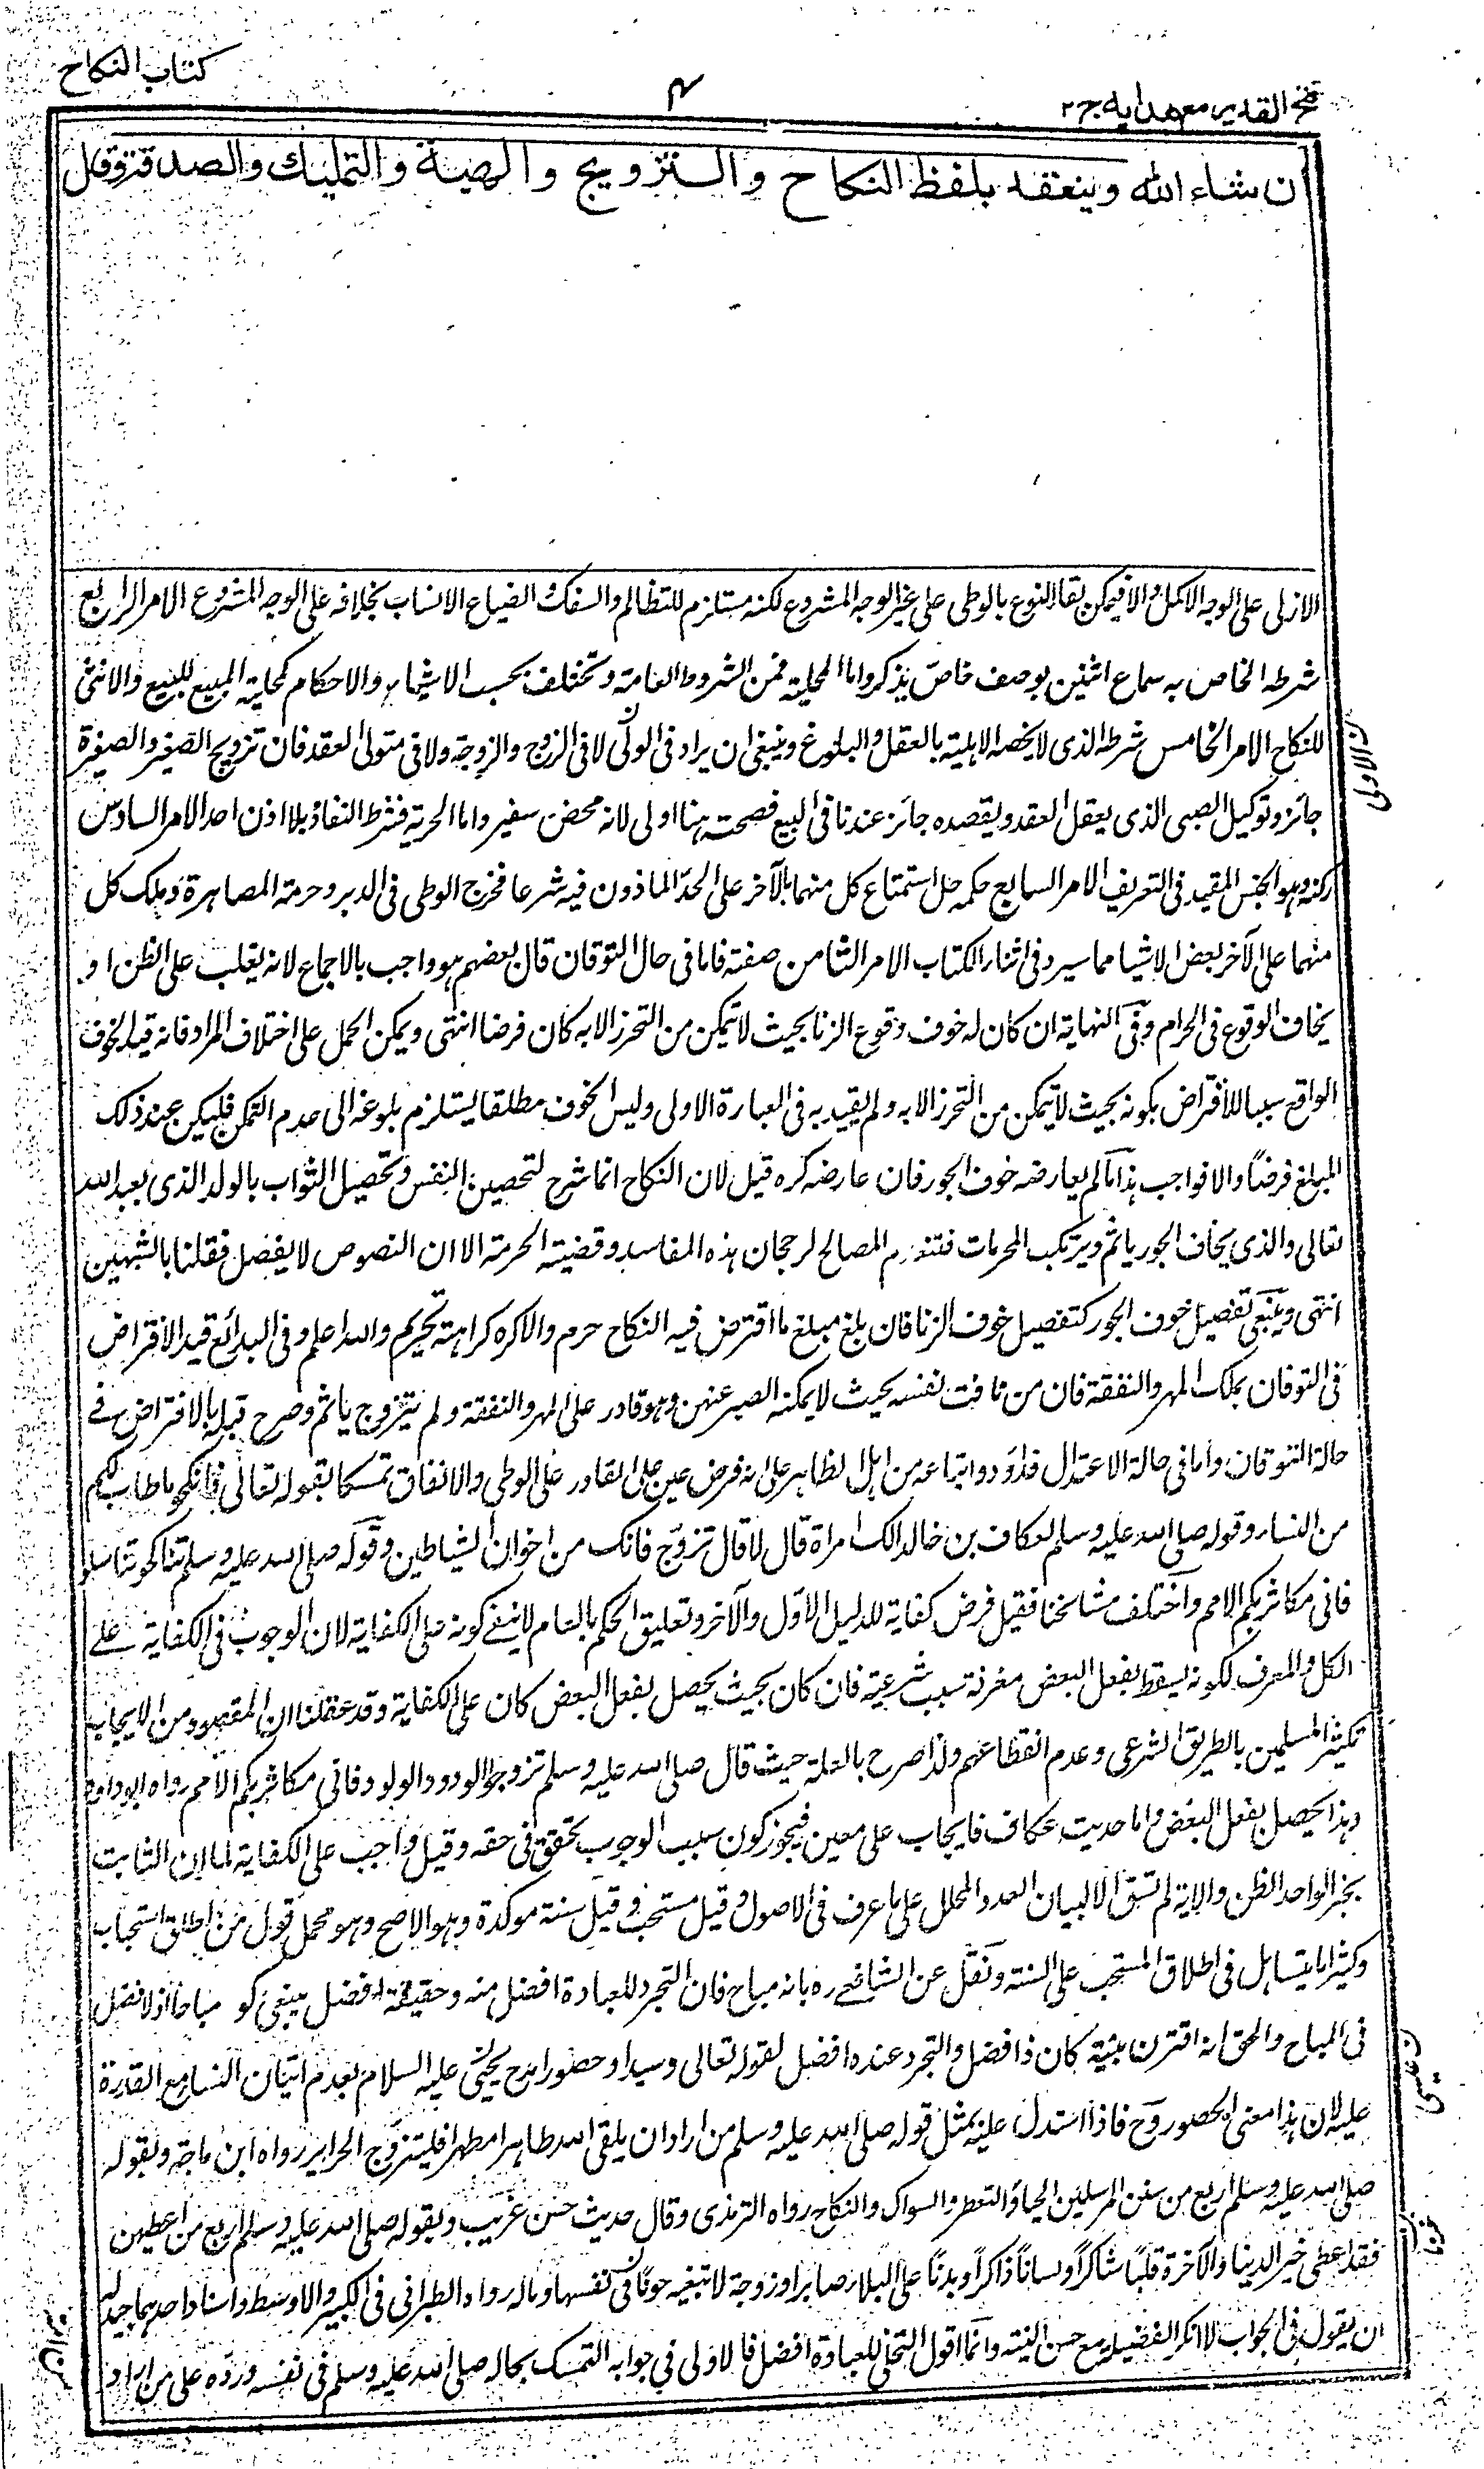 فتح القدير مع هدايه ج ٢
٤
كتاب النكاح
ان شاء الله وينعقد بلفظ النكاح والتزويج والهبة والتمليك والصدقة وقال
الازلى على الوجه الاكمل والا فيمكن بقاء النوع بالوطى على غير الوجه المشروع لكنه مستلزم للتظالم والسفك والضياع الانساب بخلافه على الوجه المشروع الامر الرابع
شرطه الخاص به سماع اثنين بوصف خاص يذكر واما المحلية فمن الشروط العامة وتختلف بحسب الاشياء والاحكام كمحلية المبيع للبيع والانثى
للنكاح الامر الخامس شرطه الذى لا يخصه الاهلية بالعقل والبلوغ وينبغى ان يراد فى الولى لا فى الزوج والزوجة ولا فى متولى العقد فان تزويج الصغير والصغيرة
جائز وتوكيل الصبى الذى يعقل العقد ويقصده جائز عندنا فى البيع فصحته هنا اولى لانه محض سفير واما الحرية فشرط النفاذ بلا اذن احد الامر السادس
ركنه وهو الجنس المقيد فى التعريف الامر السابع حكمه حل استمتاع كل منهما بالآخر على الحد الماذون فيه شرعا فخرج الوطى فى الدبر وحرمة المصاهرة وملك كل
منهما على الآخر بعض الاشيا مما سيرد فى اثناء الكتاب الامر الثامن صفته فاما فى حال التوقان قال بعضهم هو واجب بالاجماع لانه يغلب على الظن او
يخاف الوقوع فى الحرام وفى النهاية ان كان له خوف وقوع الزنا بحيث لا يتمكن من التحرز الا به كان فرضا انتهى ويمكن الحمل على اختلاف المراد فانه قيد الخوف
الواقع سببا للافتراض بكونه بحيث لا يتمكن من التحرز الا به ولم يقيد به فى العبارة الاولى وليس الخوف مطلقا يستلزم بلوغه الى عدم التمكن فليكن عند ذلك
المبلغ فرضا والا فواجب هذا ما لم يعارضه خوف الجور فان عارضه كره قيل لان النكاح انما شرع لتحصين النفس وتحصيل الثواب بالولد الذى يعبد الله
تعالى والذى يخاف الجور ياثم ويرتكب المحرمات فتنعدم المصالح لرجحان هذه المفاسد وقضيته الحرمة الا ان النصوص لا يفصل فقلنا بالشبهين
انتهى وينبغى تفصيل خوف الجور كتفصيل خوف الزنا فان بلغ مبلغ ما افترض فيه النكاح حرم والا كره كراهة تحريم والله اعلم وفى البدائع قيد الافتراض
فى التوقان بملك المهر والنفقة فان من تاقت نفسه بحيث لا يمكنه الصبر عنهن وهو قادر على المهر والنفقة ولم يتزوج ياثم وصرح قبله بالافتراض فى
حالة التوقان واما فى حالة الاعتدال فداؤد واتباعه من اهل الظاهر على انه فرض عين على القادر على الوطى والانفاق تمسكا بقوله تعالى فانكحوا ما طاب لكم
من النساء وقوله صلى الله عليه وسلم لعكاف بن خالد الك امراة قال لا قال تزوج فانك من اخوان الشياطين وقوله صلى الله عليه وسلم تناكحوا تناسلوا
فانى مكاثر بكم الامم واختلف مشائخنا فقيل فرض كفاية للدليل الاول والآخر وتعليق الحكم بالعام لا ينفى كونه على الكفاية لان الوجوب فى الكفاية على
الكل والمعرف لكونه يسقط بفعل البعض معرفة سبب شرعيته فان كان بحيث يحصل بفعل البعض كان على الكفاية وقد عقلنا ان المقصود من الايجاب
تكثير المسلمين بالطريق الشرعى وعدم انقطاعهم ولذا صرح بالعلة حيث قال صلى الله عليه وسلم تزوجوا الودود الولود فانى مكاثر بكم الامم رواه ابو داود
وهذا يحصل بفعل البعض واما حديث عكاف فايجاب على معين فيجوز كون سبب الوجوب تحقق فى حقه وقيل واجب على الكفاية لما ان الثابت
بخبر الواحد الظن والاية لم تسق الا لبيان العدد المحلل على ما عرف فى الاصول وقيل مستحب وقيل سنة موكدة وهو الاصح وهو محمل قول من اطلق استحباب
وكثيرا ما يتساهل فى اطلاق المستحب على السنة ونقل عن الشافعى ره بانه مباح فان التجرد للعبادة افضل منه وحقيقة افضل ينفى كو مباحا اذ لا فضل
فى المباح والحق انه اقترن بنية كان ذا فضل والتجرد عنده افضل لقوله تعالى وسيدا وحصورا مدح يحيى عليه السلام بعدم اتيان النساء مع القدرة
عليه لان هذا معنى الحصور وح فاذا استدل عليه بمثل قوله صلى الله عليه وسلم من اراد ان يلقى الله طاهرا مطهرا فليتزوج الحراير رواه ابن ماجة وبقوله
صلى الله عليه وسلم اربع من سنن المرسلين الحياء والتعطر والسواك والنكاح رواه الترمذى وقال حديث حسن غريب وبقوله صلى الله عليه وسلم اربع من اعطيهن
فقد اعطى خير الدنيا والآخرة قلبا شاكرا ولسانا ذاكرا وبدنا على البلاء صابرا وزوجة لا تبغيه حوبا فى نفسها وماله رواه الطبرانى فى الكبير والاوسط واسناد احدهما جيد له
ان يقول فى الجواب لا انكر الفضيلة مع حسن النية وانما اقول التخلى للعبادة افضل فالاولى فى جوابه التمسك بحاله صلى الله عليه وسلم فى نفسه ورده على من اراد